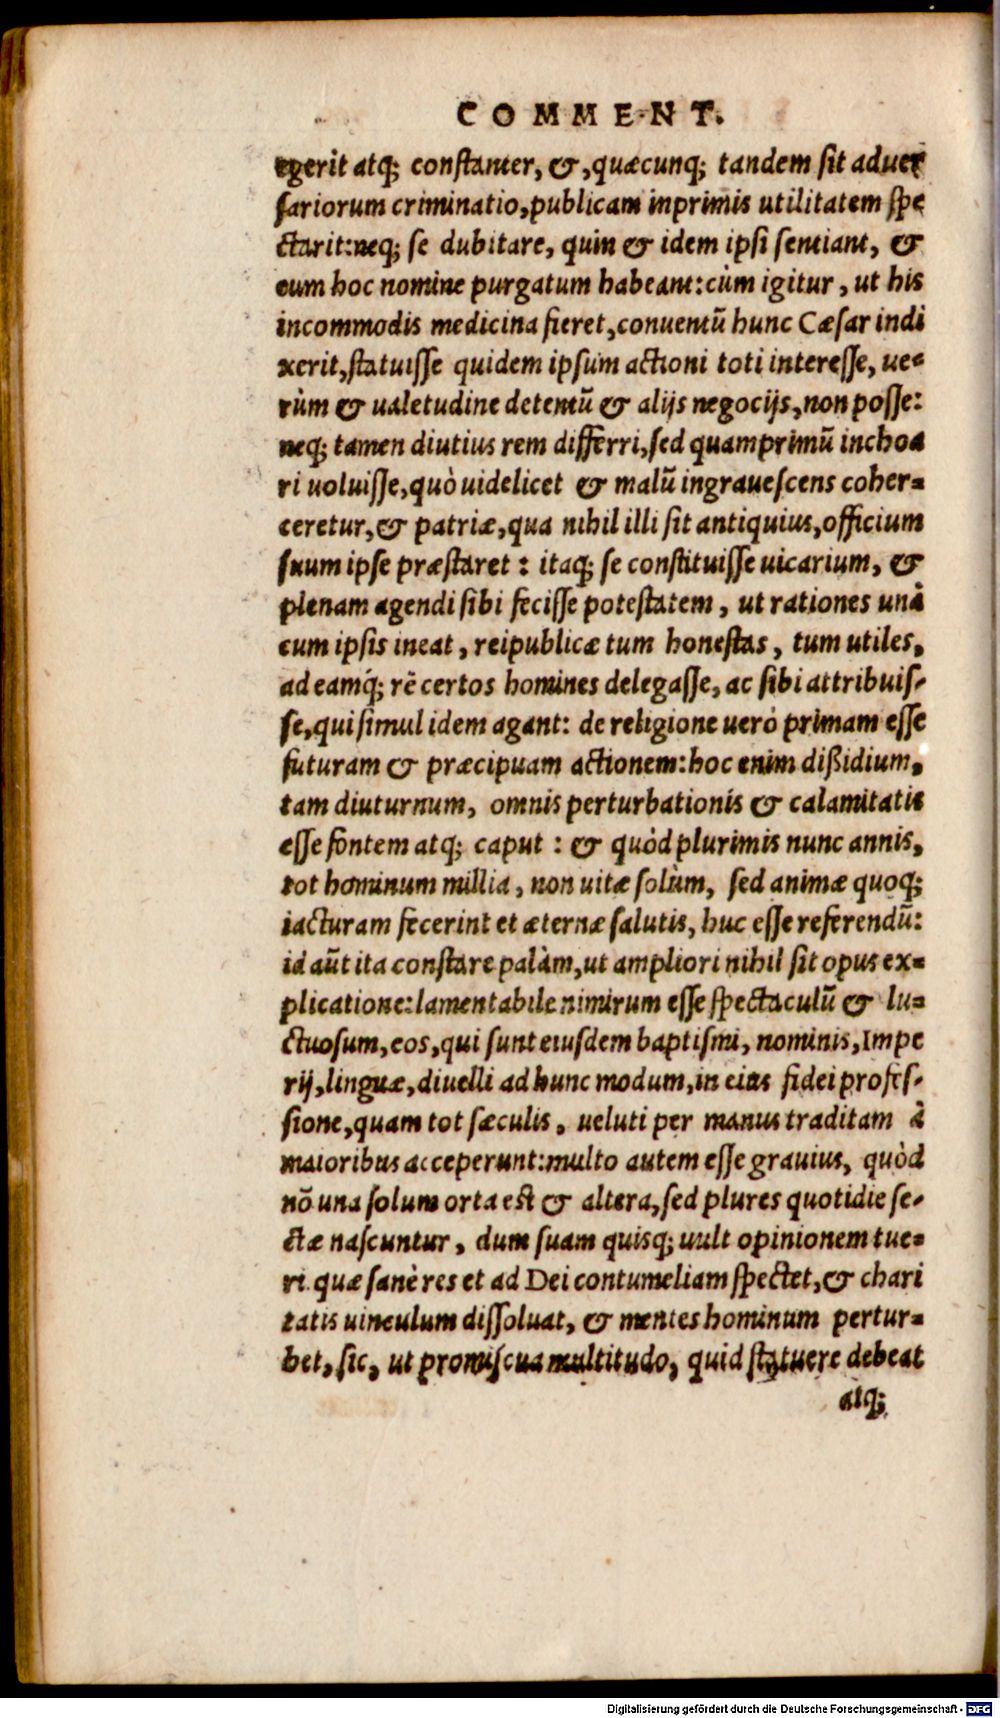 COMMENT.
egerit atq; constanter, &, quæcunq; tandem sit aduer
sariorum criminatio, publicam inprimis utilitatem spe
ctarit: neq; se dubitare, quin & idem ipsi sentiant, &
eum hoc nomine purgatum habeant: cùm igitur, ut his
incommodis medicina fieret, conuentũ hunc Cæsar indi
xerit, statuisse quidem ipsum actioni toti interesse, ue-
rùm & ualetudine detentũ & alijs negocijs, non posse:
neq; tamen diutius rem differri, sed quamprimũ inchoa
ri uoluisse, quò uidelicet & malũ ingrauescens coher-
ceretur, & patriæ, qua nihil illi sit antiquius, officium
suum ipse præstaret: itaq; se constituisse uicarium, &
plenam agendi sibi fecisse potestatem, ut rationes unà
cum ipsis ineat, reipublicæ tum honestas, tum utiles,
ad eamq́; rē certos homines delegasse, ac sibi attribuis-
se, qui simul idem agant: de religione uerò primam esse
futuram & præcipuam actionem: hoc enim dißidium,
tam diuturnum, omnis perturbationis & calamitatis
esse fontem atq; caput: & quòd plurimis nunc annis,
tot hominum millia, non uitæ solùm, sed animæ quoq;
iacturam fecerint et æternæ salutis, huc esse referendũ:
id aũt ita constare palàm, ut ampliori nihil sit opus ex-
plicatione: lamentabile nimirum esse spectaculũ & lu-
ctuosum, eos, qui sunt eiusdem baptismi, nominis, Impe
rij, linguæ, diuelli ad hunc modum, in eius fidei profes-
sione, quam tot sæculis, ueluti per manus traditam à
maioribus acceperunt: multo autem esse grauius, quòd
nō una solum orta est & altera, sed plures quotidie se-
ctæ nascuntur, dum suam quisq; uult opinionem tue-
ri. quæ sanè res et ad Dei contumeliam spectet, & chari
tatis uinculum dissoluat, & mentes hominum pertur-
bet, sic, ut promiscua multitudo, quid statuere debeat
atq;
Digitalisierung gefördert durch die Deutsche Forschungsgemeinschaft - DFG